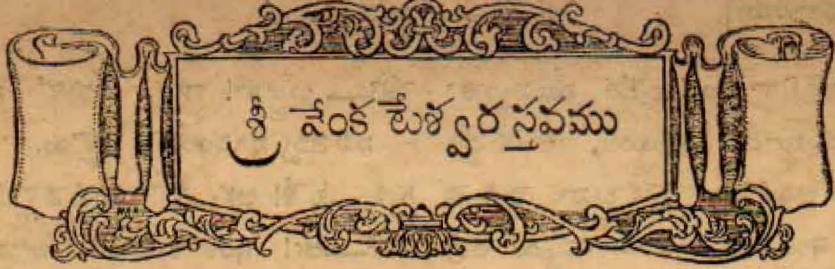 శ్రీ వేంకటేశ్వర స్తవము